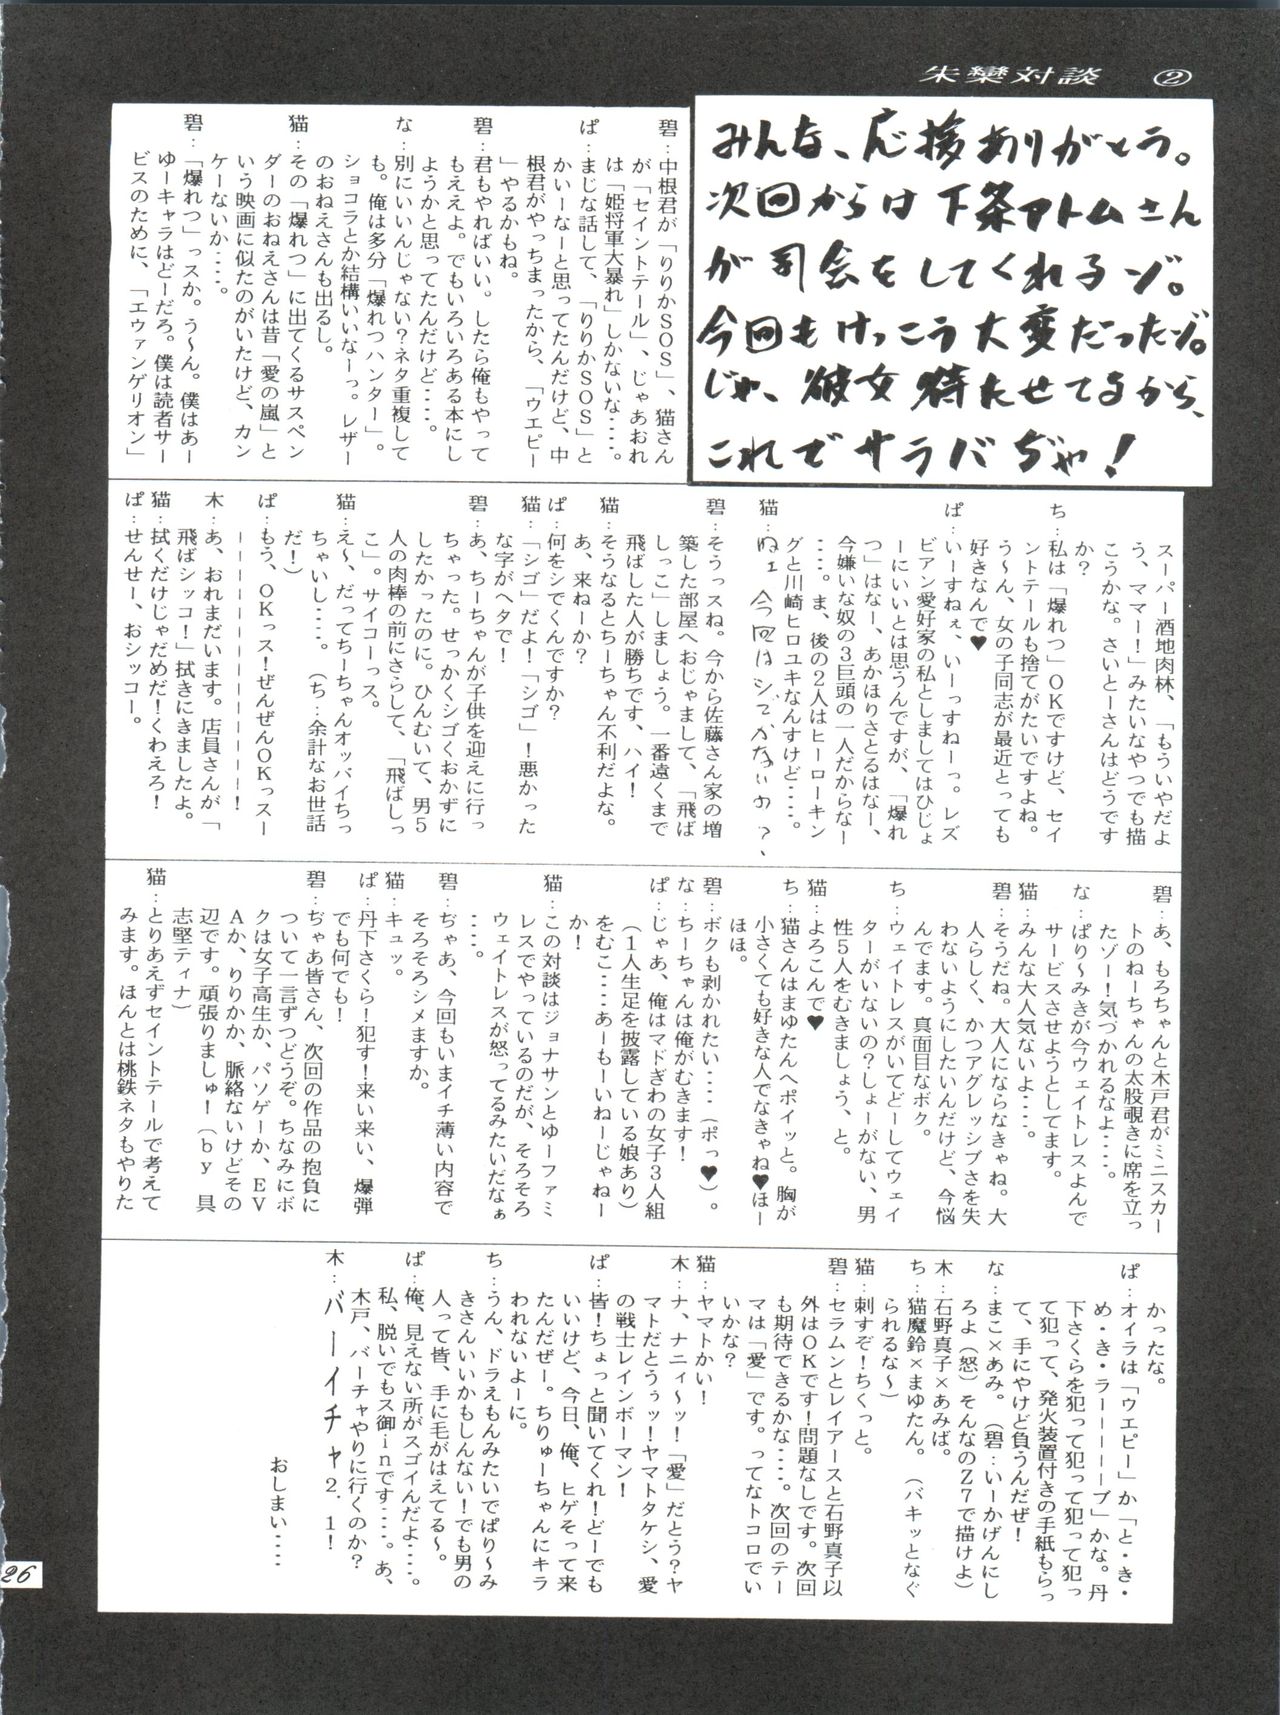 朱欒対談 ②
みんな、応援ありがとう。
次回からは下条アトムさん
が司会をしてくれるゾ。
今回もけっこう大変だったゾ。
じゃ、彼女待たせてるから、
これでサラバぢゃ!
碧:中根君が「りりかSOS」、猫さん
が「セイントテール」、じゃあおれ
は「姫将軍大暴れ」しかないな....。
ぱ:まじな話して、「りりかSOS」と
かいーなーと思ってたんだけど、中
根君がやっちまったから、「ウエピー
」やるかもね。
碧:君もやればいい。したら俺もやって
もええよ。でもいろいろある本にし
ようかと思ってたんだけど....。
な:別にいいんじゃない?ネタ重複して
も。俺は多分「爆れつハンター」。
ショコラとか結構いいなーっ。レザー
のおねえさんも出るし。
猫:その「爆れつ」に出てくるサスペン
ダーのおねえさんは昔「愛の嵐」と
いう映画に似たのがいたけど、カン
ケーないか....。
碧:「爆れつ」っスか。う~ん。僕はあー
ゆーキャラはどーだろ。僕は読者サー
ビスのために、「エヴァンゲリオン」
スーパー酒地肉林、「もういやだよ
う、ママー!」みたいなやつでも描
こうかな。さいとーさんはどうです
か?
ち:私は「爆れつ」OKですけど、セイ
ントテールも捨てがたいですよね。
う~ん、女の子同志が最近とっても
好きなんで♥
ぱ:いーすねぇ、いーっすねーっ。レズ
ビアン愛好家の私としましてはひじょ
ーにいいとは思うんですが、「爆れ
つ」はなー、あかほりさとるはなー、
今嫌いな奴の3巨頭の一人だからなー
....。ま、後の2人はヒーローキン
グと川崎ヒロユキなんすけど....。
猫:ねェ今回はシゴかないの?、
碧:そうっスね。今から佐藤さん家の増
築した部屋へおじゃまして、「飛ば
しっこ」しましょう。一番遠くまで
飛ばした人が勝ちです、ハイ!
猫:そうなるとちーちゃん不利だよな。
あ、来ねーか?
ぱ:何をシでくんですか?
猫:「シゴ」だよ!「シゴ」!悪かった
な字がヘタで!
碧:あ、ちーちゃんが子供を迎えに行っ
ちゃった。せっかくシゴくおかずに
したかったのに。ひんむいて、男5
人の肉棒の前にさらして、「飛ばしっ
こ」。サイコーっス。
猫:え~、だってちーちゃんオッパイちっ
ちゃいし....。(ち:余計なお世話
だ!)
ぱ:もう、OKっス!ぜんぜんOKっスー
ーーーーーーーーーーーーー!
木:あ、おれまだいます。店員さんが「
飛ばシッコ!」拭きにきましたよ。
猫:拭くだけじゃだめだ!くわえろ!
ぱ:せんせー、おシッコー。
碧:あ、もろちゃんと木戸君がミニスカー
トのねーちゃんの太股覗きに席を立っ
たゾー!気づかれるなよ....。
な:ぱり~みきが今ウェイトレスよんで
サービスさせようとしてます。
猫:みんな大人気ないよ....。
碧:そうだね。大人にならなきゃね。大
人らしく、かつアグレッシブさを失
わないようにしたいんだけど、今悩
んでます。真面目なボク。
ち:ウェイトレスがいてどーしてウェイ
ターがいないの?しょーがない、男
性5人をむきましょう、と。
猫:よろこんで♥
ち:猫さんはまゆたんへポイッと。胸が
小さくても好きな人でなきゃね♥ほー
ほほ。
碧:ボクも剥かれたい....(ポっ♥)。
な:ちーちゃんは俺がむきます!
ぱ:じゃあ、俺はマドぎわの女子3人組
(1人生足を披露している娘あり)
をむこ....あーもーいねーじゃねー
か!
猫:この対談はジョナサンとゆーファミ
レスでやっているのだが、そろそろ
ウェイトレスが怒ってるみたいだなぁ
....。
碧:ぢゃあ、今回もいまイチ薄い内容で
そろそろシメますか。
猫:キュッ。
ぱ:丹下さくら!犯す!来い来い、爆弾
でも何でも!
碧:ぢゃあ皆さん、次回の作品の抱負に
ついて一言ずつどうぞ。ちなみにボ
クは女子高生か、パソゲーか、EV
Aか、りりかか、脈絡ないけどその
辺です。頑張りましゅ!(by 具
志堅ティナ)
猫:とりあえずセイントテールで考えて
みます。ほんとは桃鉄ネタもやりた
かったな。
ぱ:オイラは「ウエピー」か「と・き・
め・き・ラーーーーブ」かな。丹
下さくらを犯って犯って犯って犯っ
て犯って、発火装置付きの手紙もらっ
て、手にやけど負うんだぜ!
な:まこ×あみ。(碧:いーかげんにし
ろよ(怒)そんなのZ7で描けよ)
木:石野真子×あみば。
ち:猫魔鈴×まゆたん。(バキッとなぐ
られるな~)
猫:刺すぞ!ちくっと。
碧:セラムンとレイアースと石野真子以
外はOKです!問題なしです。次回
も期待できるかな....。次回のテー
マは「愛」です。ってなトコロでい
いかな?
猫:ヤマトかい!
木:ナ、ナニィ~ッ!「愛」だとう?ヤ
マトだとうぅッ!ヤマトタケシ、愛
の戦士レインボーマン!
ぱ:皆!ちょっと聞いてくれ!どーでも
いいけど、今日、俺、ヒゲそって来
たんだぜー。ちりゅーちゃんにキラ
われないよーに。
ち:うん、ドラえもんみたいでぱり~み
きさんいいかもしんない!でも男の
人って皆、手に毛がはえてる~。
ぱ:俺、見えない所がスゴイんだよ....。
私、脱いでもス御inです....。あ、
木戸、バーチャやりに行くのか?
木:バーイチャ2.1!
おしまい....
26